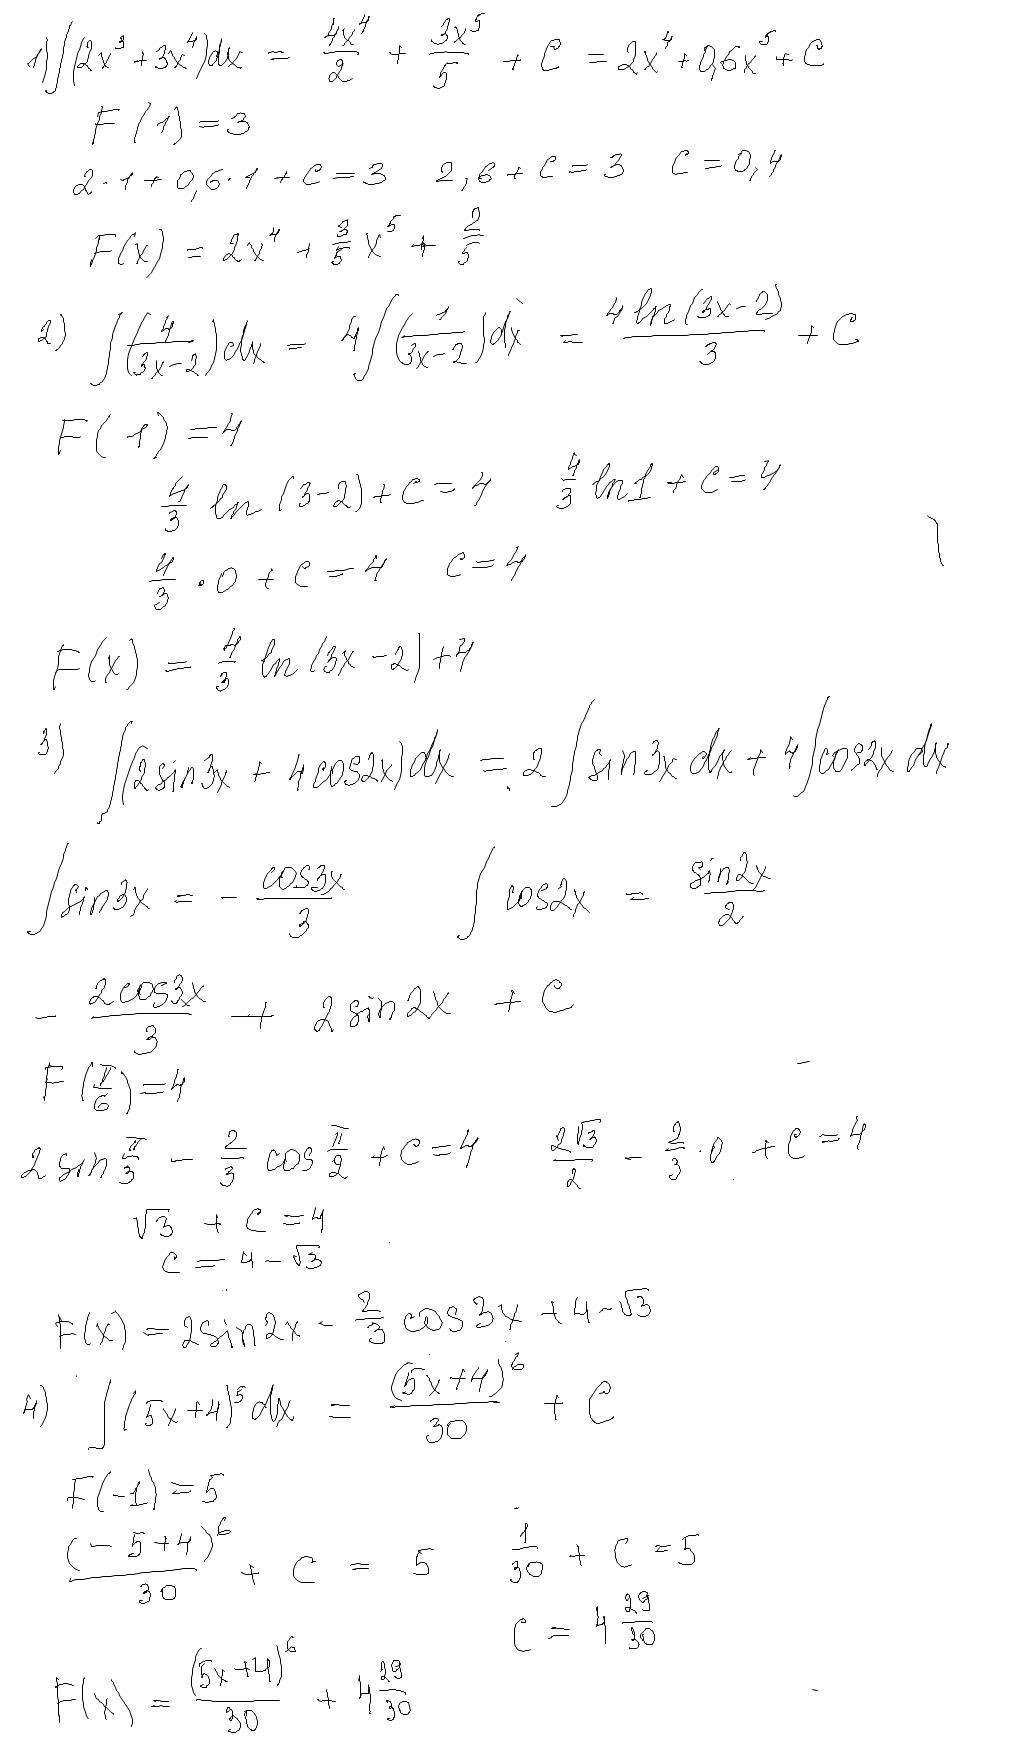 1) ∫(2x³+3x⁴)dx = 4x⁴/2 + 3x⁵/5 + C = 2x⁴+0,6x⁵+C
F(1)=3
2·1+0,6·1+C=3 2,6+C=3 C=0,4
F(x) = 2x⁴ + 3/5 x⁵ + 2/5
2) ∫(4/(3x-2))dx = 4∫(1/(3x-2))dx = 4 ln(3x-2)/3 + C
F(1)=4
4/3 ln(3-2)+C=4 4/3 ln1+C=4
4/3·0+C=4 C=4
F(x) = 4/3 ln(3x-2)+4
3) ∫(2sin3x + 4cos2x)dx = 2∫sin3x dx + 4∫cos2x dx
∫sin3x = - cos3x/3 ∫cos2x = sin2x/2
- 2cos3x/3 + 2sin2x + C
F(π/6)=4
2sin π/3 - 2/3 cos π/2 + C=4 2√3/2 - 2/3·0 + C=4
√3 + C=4
C=4-√3
F(x)=2sin2x - 2/3 cos3x+4-√3
4) ∫(5x+4)⁵dx = (5x+4)⁶/30 + C
F(-1)=5
(-5+4)⁶/30 + C = 5 1/30 + C=5
C = 4 29/30
F(x) = (5x+4)⁶/30 + 4 29/30